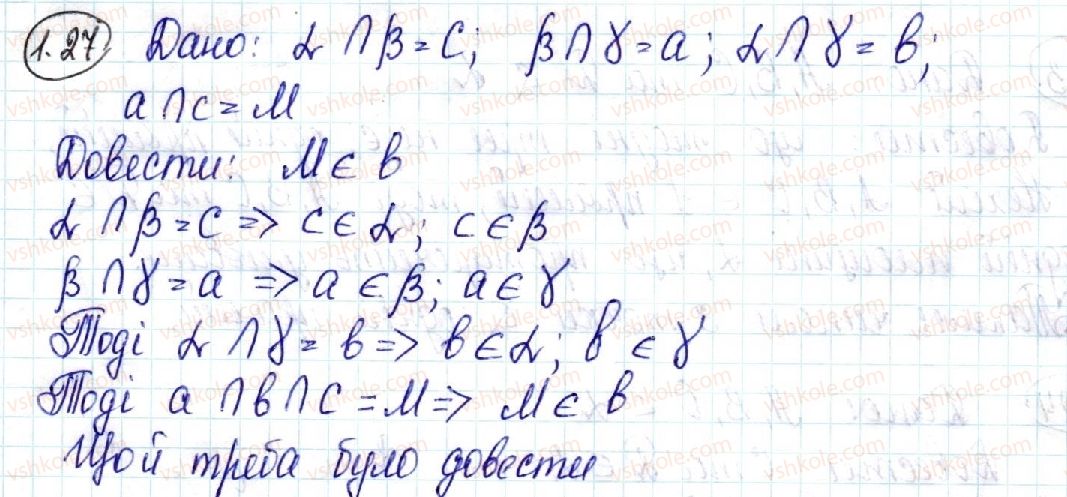 1.27 Дано: α ∩ β = c; β ∩ γ = a; α ∩ γ = в;
a ∩ c = M
Довести: M ∈ в
α ∩ β = c => c ∈ α; c ∈ β
β ∩ γ = a => a ∈ β; a ∈ γ
Тоді α ∩ γ = в => в ∈ α; в ∈ γ
Тоді a ∩ в ∩ c = M => M ∈ в
Щой треба було довести